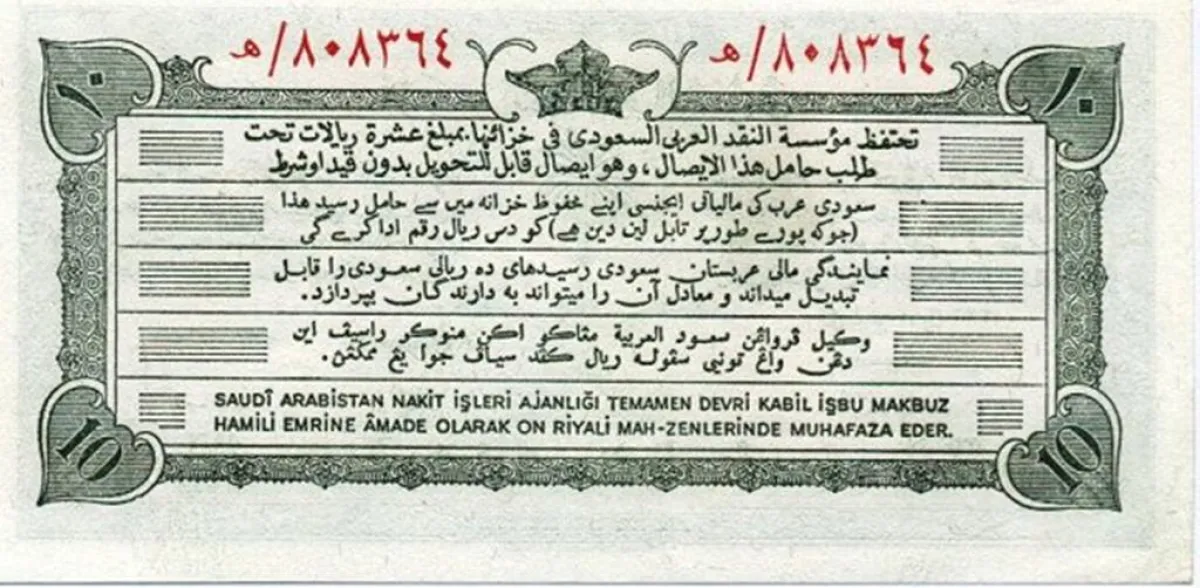 ه/٨٠٨٣٦٤ ه/٨٠٨٣٦٤
١٠ ١٠
تحتفظ مؤسسة النقد العربى السعودى فى خزائنها.بمبلغ عشرة ريالات تحت
طلب حامل هذا الايصال ، وهو ايصال قابل للتحويل بدون قيد اوشرط
سعودی عرب کی مالیاتی ایجنسی اپنے محفوظ خزانہ میں سے حامل رسید هذا
(جوکہ پورے طور پر قابل لین دین ہے)کو دس ریال رقم ادا کرے گی
نمایندگی مالی عربستان سعودی رسیدهای ده ریالی سعودی را قابل
تبدیل میداند و معادل آن را میتواند به دارندگان بپردازد.
وكيل ڤرواڠن سعود العربية مڠاكو اكن منوكر راسيڤ اين
دڠن واڠ تونبي سڤوله ريال كڤد سياڤ جوا يڠ ممڬڠن.
SAUDÎ ARABİSTAN NAKİT İŞLERİ AJANLIĞI TEMAMEN DEVRİ KABİL İŞBU MAKBUZ
HAMİLİ EMRİNE ÂMADE OLARAK ON RİYALİ MAH-ZENLERİNDE MUHAFAZA EDER.
10 10